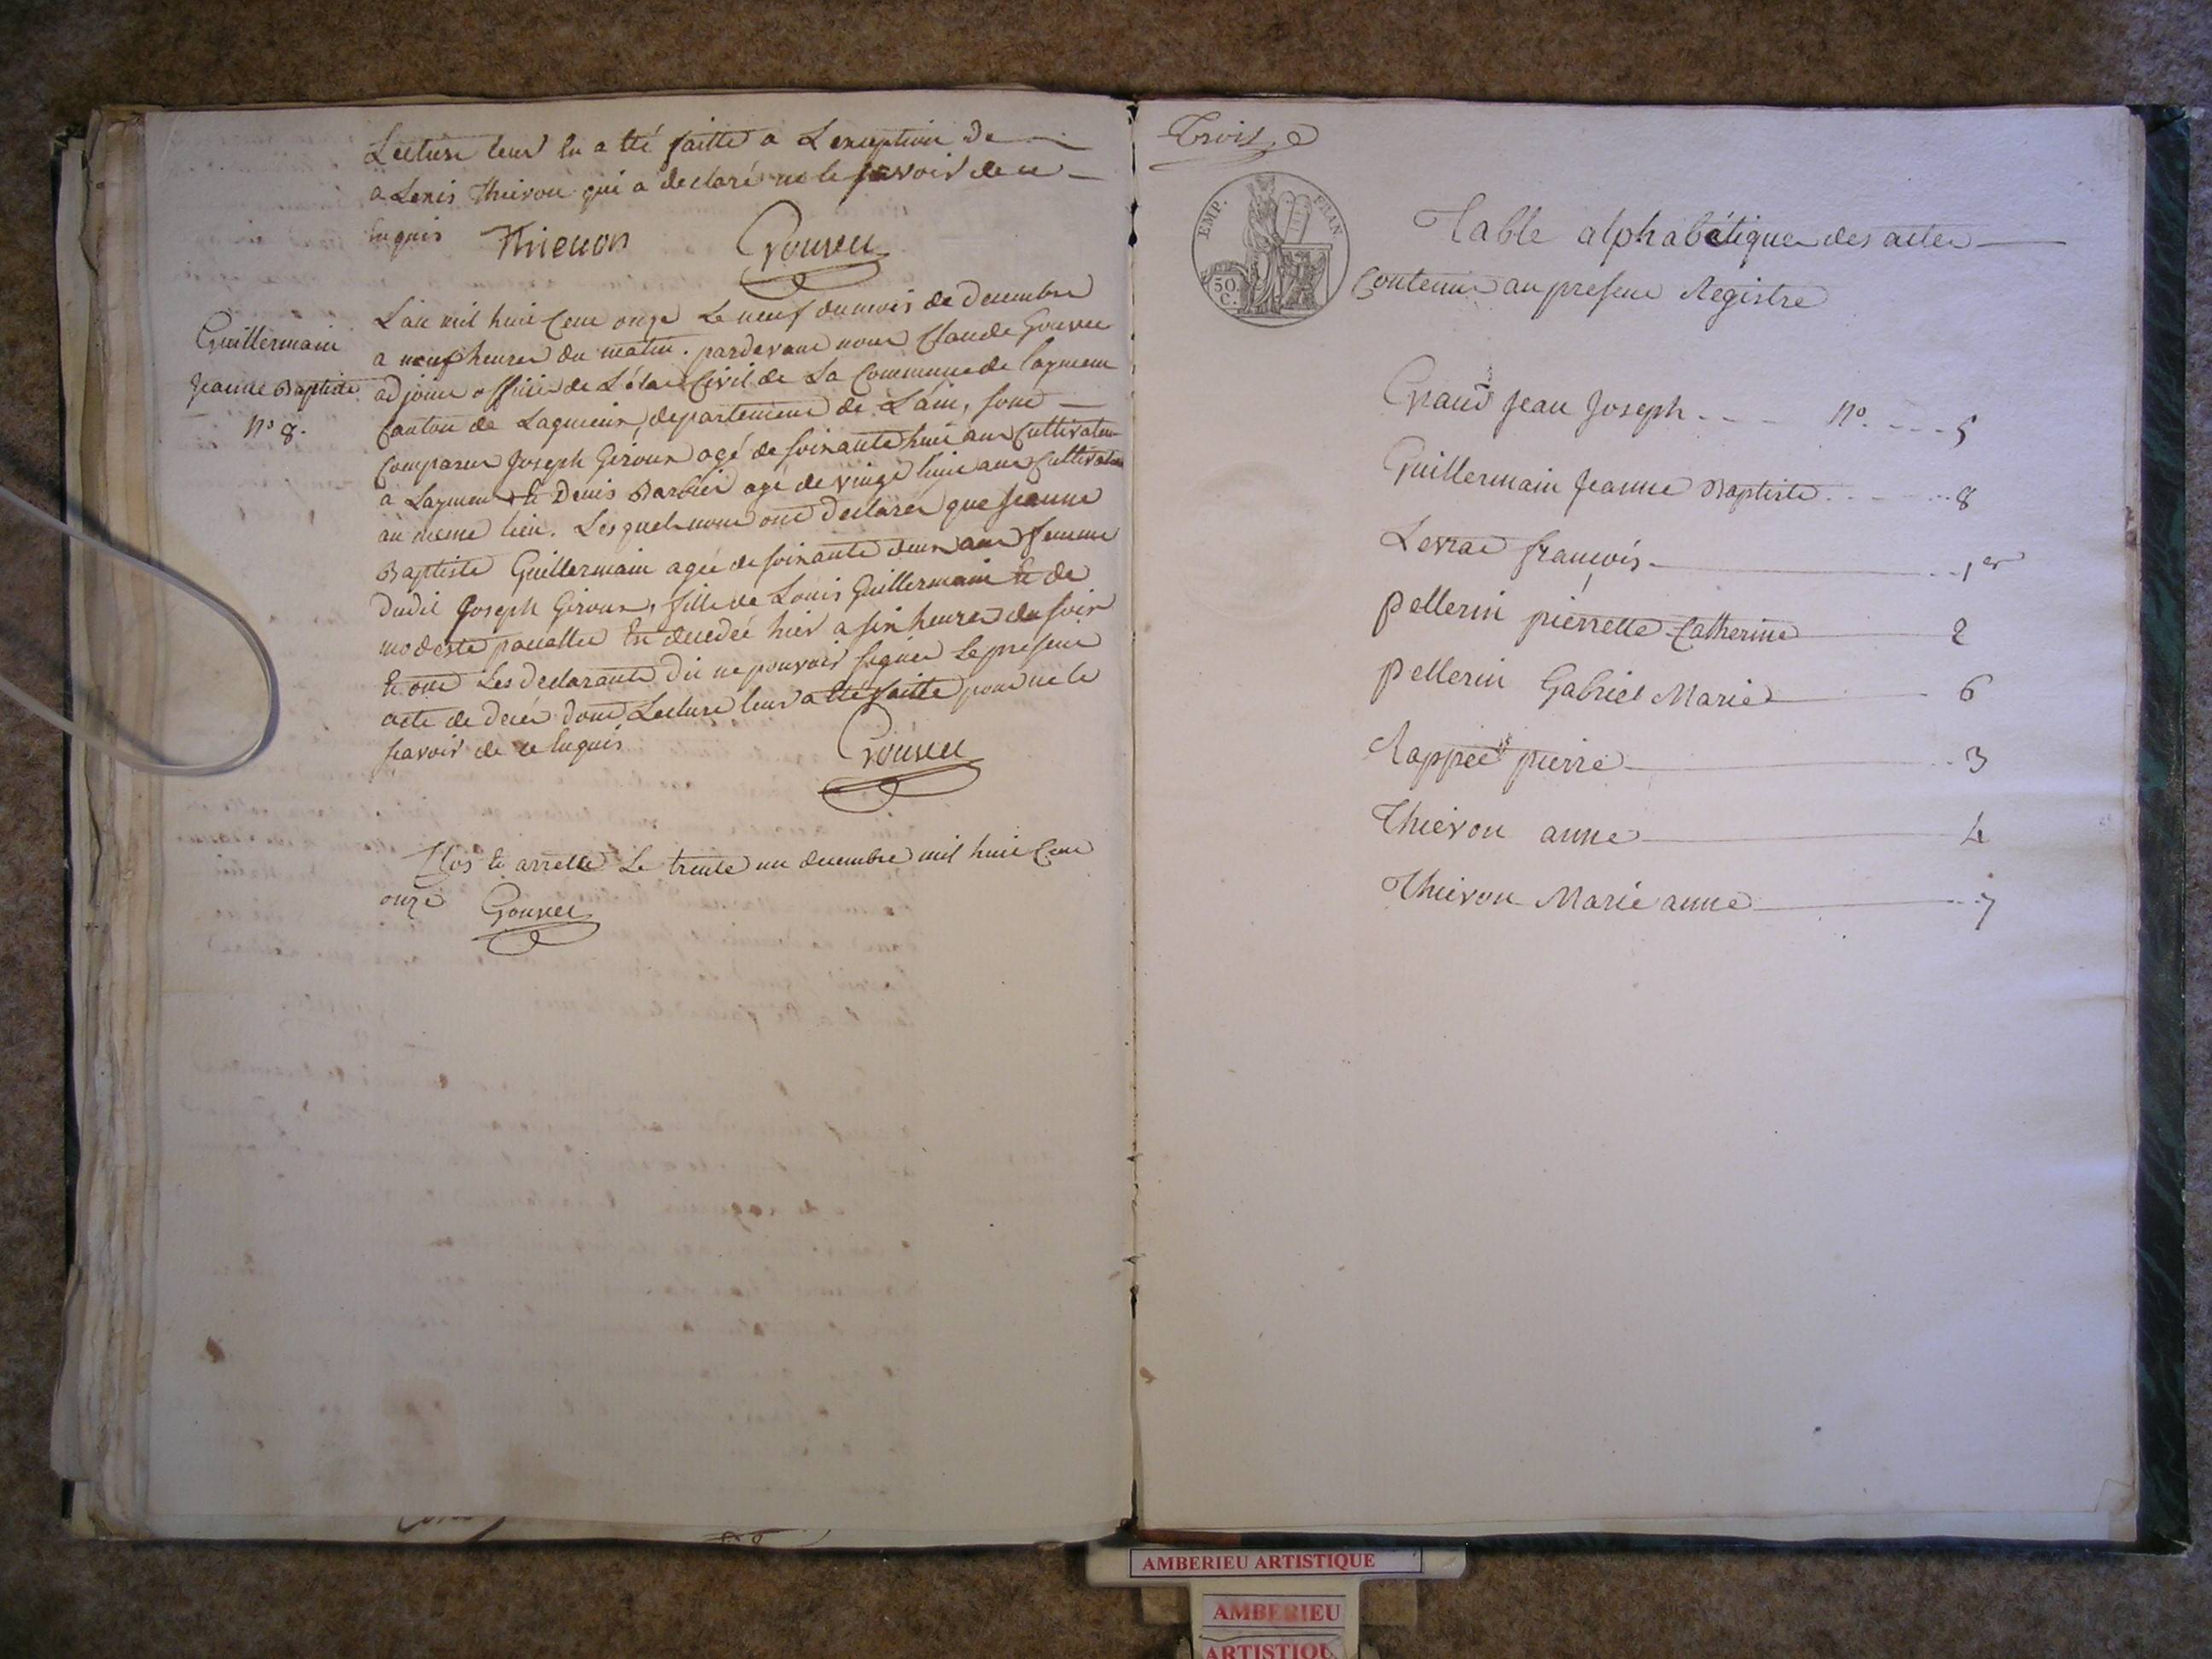 Lecture leur en a été faitte a L'exception de
a Lexis Thievon qui a declaré ne le savoir de ce
Enquis Thievon Gouveu
Guillermain
Jeanne Baptiste
N° 8.
L'an mil huit Cent onze Le neuf du mois de Decembre
a neuf heures du matin. pardevant nous Claude Gouveu
adjoint officier de L'état Civil de La Commune de Loyment
Canton de Lagnieux, departement de L'ain, sont
Comparus Joseph Giroux agé de soixante huit ans Cultivateur
a Loyment Et Denis Barbier agé de vingt huit ans Cultivateur
au meme lieu. Lesquels nous ont declarés que Jeanne
Baptiste Guillermain agée de soixante deux ans femme
dudit Joseph Giroux, fille de Louis Guillermain Et de
modeste Est decedée hier a six heures du soir
Et ont Les declarants dit ne pouvoir signer Le present
acte de decés dont Lecture leur a été faitte pour ne le
scavoir de ce Enquis
Gouveu
Clos Et arretté Le trente un decembre mil huit Cent
onze Gouveu
Trois.e
EMP. FRAN.
50.
C.
Table alphabétique des actes
Contenus au present Registre
Graud Jean Joseph - - - N°. - - - 5
Guillermain Jeanne Baptiste - - - 8
Levrat françois - 1er
Pellerin pierrette Catherine 2
Pellerin Gabriel Marie 6
Rappet pierre 3
Thievon anne 4
Thievon Marie anne 7
AMBERIEU ARTISTIQUE
AMBERIEU
ARTISTIQU